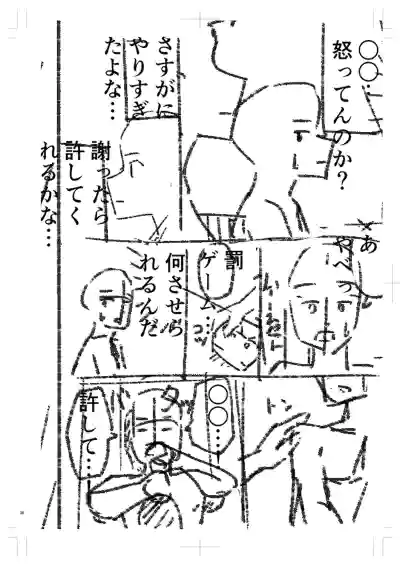 〇〇…
怒ってんのか？
さすがに
やりすぎ
たよな…
謝ったら
許してく
れるかな…
あ
やべっ
罰
ゲーム…
何させら
れるんだ
コッ
トン
〇〇…
許して…